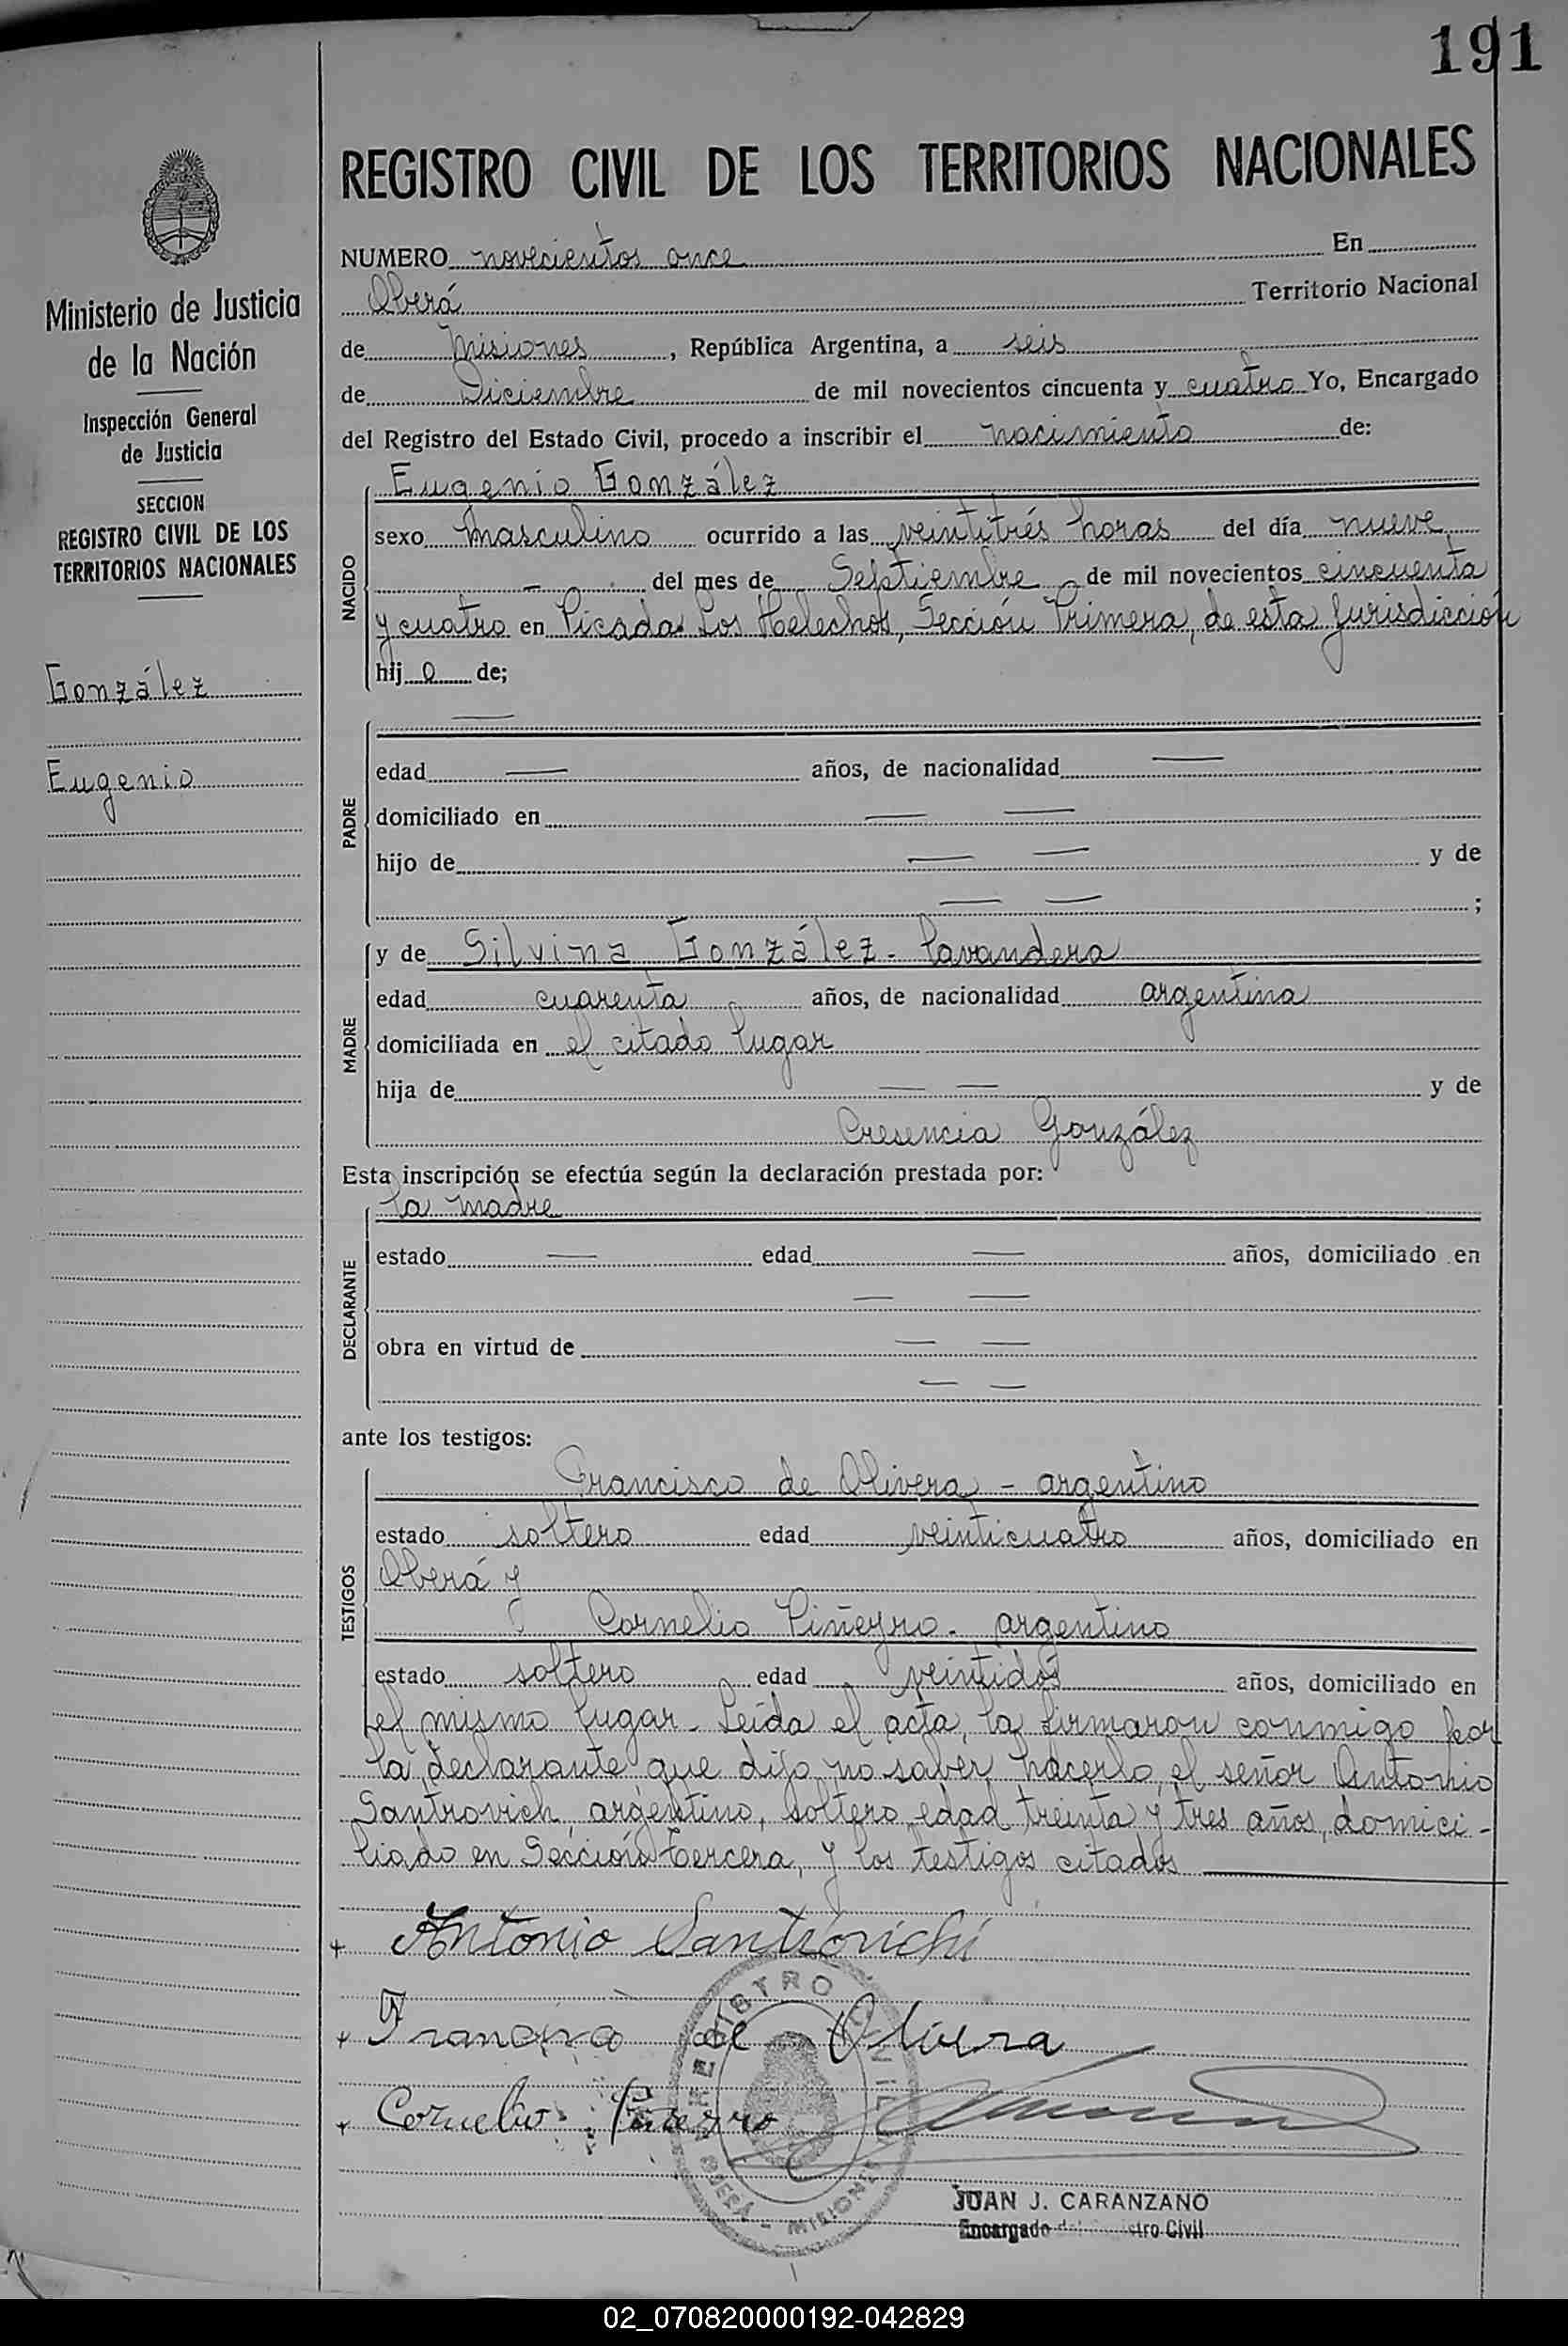 191
Ministerio de Justicia
de la Nación
Inspección General
de Justicia
SECCION
REGISTRO CIVIL DE LOS
TERRITORIOS NACIONALES
González
Eugenio
REGISTRO CIVIL DE LOS TERRITORIOS NACIONALES
NUMERO novecientos once En
Oberá Territorio Nacional
de Misiones, República Argentina, a seis
de Diciembre de mil novecientos cincuenta y cuatro Yo, Encargado
del Registro del Estado Civil, procedo a inscribir el nacimiento de:
NACIDO
Eugenio González
sexo masculino ocurrido a las veintitrés horas del día nueve
— del mes de Septiembre de mil novecientos cincuenta
y cuatro en Picada Los Helechos, Sección Primera, de esta jurisdicción
hijo de;
PADRE
—
edad — años, de nacionalidad —
domiciliado en — —
hijo de — — y de
— — ;
MADRE
y de Silvina González - lavandera
edad cuarenta años, de nacionalidad argentina
domiciliada en el citado lugar
hija de — — y de
Cresencia González
Esta inscripción se efectúa según la declaración prestada por:
DECLARANTE
la madre
estado — edad — años, domiciliado en
— —
obra en virtud de — —
— —
ante los testigos:
TESTIGOS
Francisco de Olivera - argentino
estado soltero edad veinticuatro años, domiciliado en
Oberá y
Cornelio Piñeyro - argentino
estado soltero edad veintidos años, domiciliado en
el mismo lugar - Leída el acta, la firmaron conmigo por
la declarante que dijo no saber hacerlo, el señor Antonio
Santrovich, argentino, soltero, edad treinta y tres años, domici-
liado en Sección Tercera, y los testigos citados
+ Antonio Santrovich
+ Francisco de Olivera
+ Cornelio Piñeyro
REGISTRO CIVIL
OBERÁ - MISIONES
JUAN J. CARANZANO
Encargado del Registro Civil
02_070820000192-042829